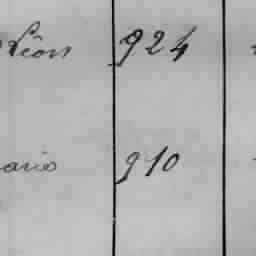 Léon 924
ario 910